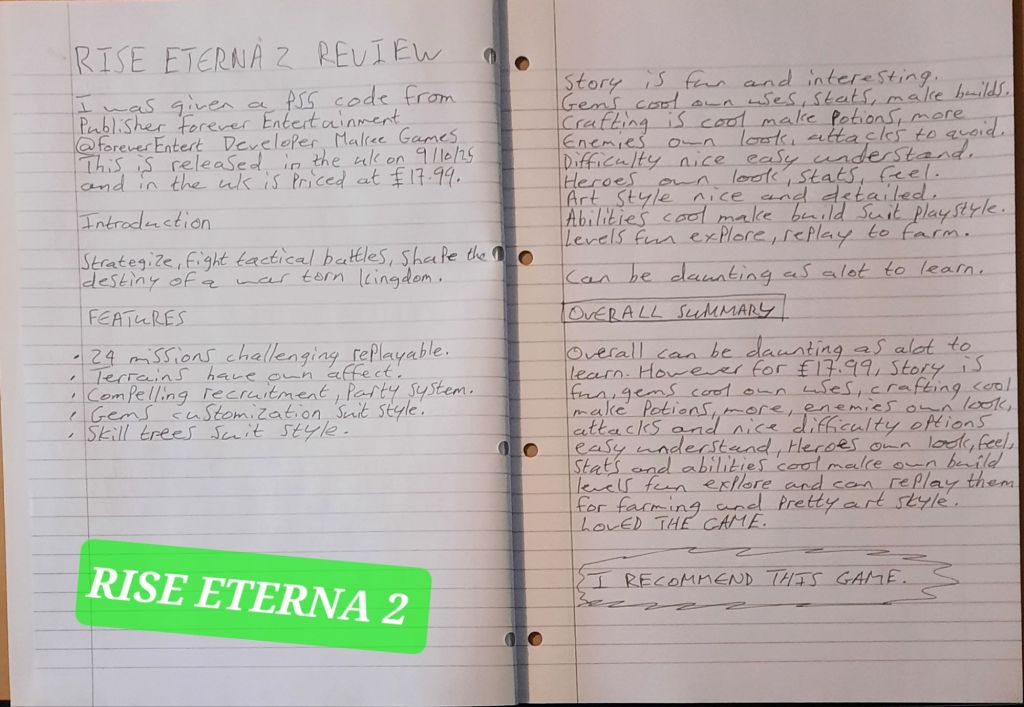 RISE ETERNA 2 REVIEW
I was given a PS5 code from
Publisher Forever Entertainment
@ForeverEntert Developer Makee Games
This is released in the uk on 9/10/25
and in the uk is Priced at £17.99.
Introduction
Strategize, Fight tactical battles, Shape the
destiny of a war torn kingdom.
FEATURES
• 24 missions challenging replayable.
• Terrains have own affect.
• Compelling recruitment, Party System.
• Gems customization suit style.
• Skill trees suit style.
RISE ETERNA 2
Story is fun and interesting.
Gems cool own uses, stats, make builds.
Crafting is cool make Potions, more
Enemies own look, attacks to avoid.
Difficulty nice easy understand.
Heroes own look, stats, feel.
Art style nice and detailed.
Abilities cool make build suit playstyle.
Levels fun explore, replay to farm.
Can be daunting as alot to learn.
OVERALL SUMMARY
Overall can be daunting as alot to
learn. However for £17.99, story is
fun, gems cool own uses, crafting cool
make Potions, more, enemies own look,
attacks and nice difficulty options
easy understand, Heroes own look, feel,
stats and abilities cool make own build
levels fun explore and can replay them
for farming and Pretty art style.
LOVED THE GAME.
I RECOMMEND THIS GAME.